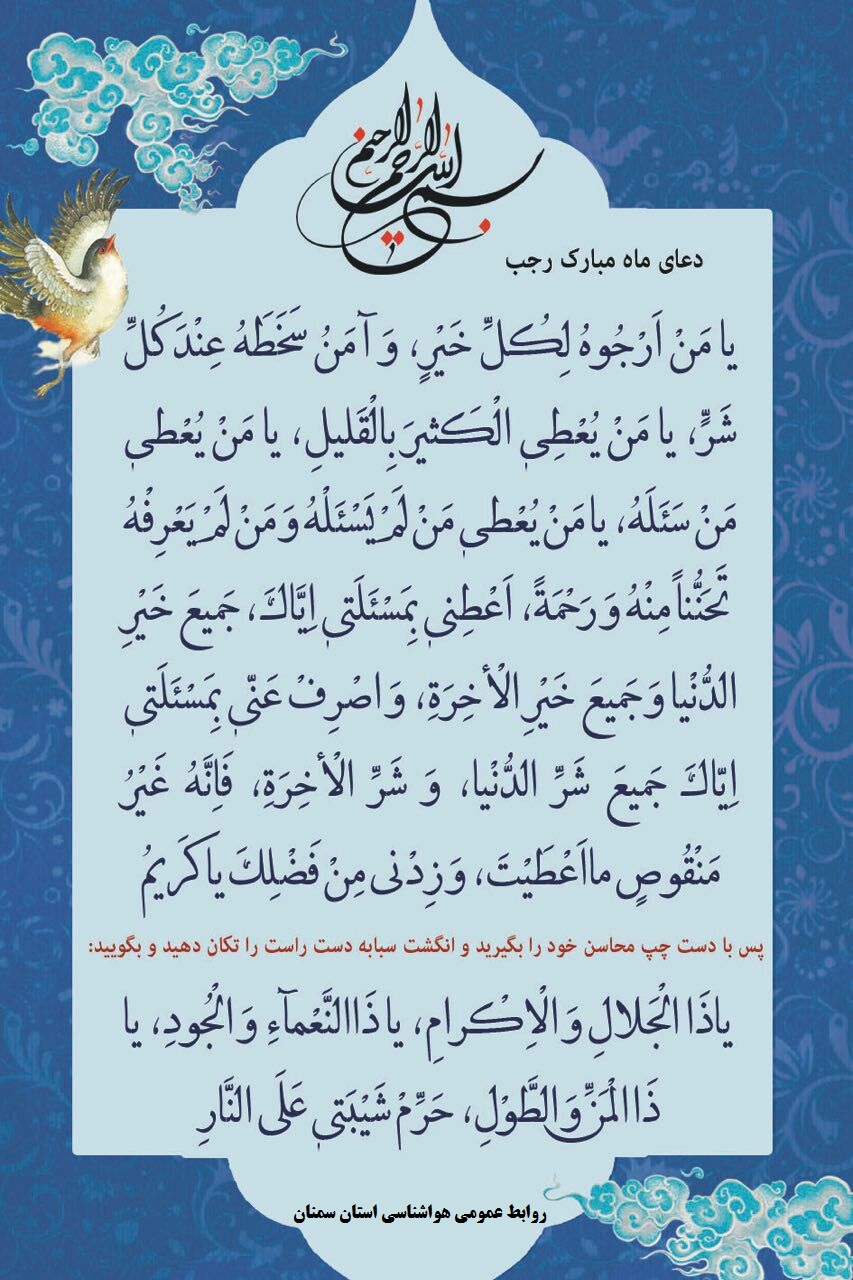 بسم الله الرحمن الرحیم
دعای ماه مبارک رجب
یا مَنْ اَرْجُوهُ لِکُلِّ خَیْرٍ، وَ آمَنُ سَخَطَهُ عِنْدَ کُلِّ
شَرٍّ، یا مَنْ یُعْطِی الْکَثیرَ بِالْقَلیلِ، یا مَنْ یُعْطی
مَنْ سَئَلَهُ، یا مَنْ یُعْطی مَنْ لَمْ یَسْئَلْهُ وَ مَنْ لَمْ یَعْرِفْهُ
تَحَنُّناً مِنْهُ وَ رَحْمَةً، اَعْطِنی بِمَسْئَلَتی اِیَّاکَ، جَمیعَ خَیْرِ
الدُّنْیا وَ جَمیعَ خَیْرِ الْأخِرَةِ، وَ اصْرِفْ عَنّی بِمَسْئَلَتی
اِیّاکَ جَمیعَ شَرِّ الدُّنْیا، وَ شَرِّ الْأخِرَةِ، فَاِنَّهُ غَیْرُ
مَنْقُوصٍ ما اَعْطَیْتَ، وَ زِدْنی مِنْ فَضْلِکَ یا کَریمُ
پس با دست چپ محاسن خود را بگیرید و انگشت سبابه دست راست را تکان دهید و بگویید:
یا ذَا الْجَلالِ وَ الْاِکْرامِ، یا ذَا النَّعْمآءِ وَ الْجُودِ، یا
ذَا الْمَنِّ وَ الطَّوْلِ، حَرِّمْ شَیْبَتی عَلَی النَّارِ
روابط عمومی هواشناسی استان سمنان